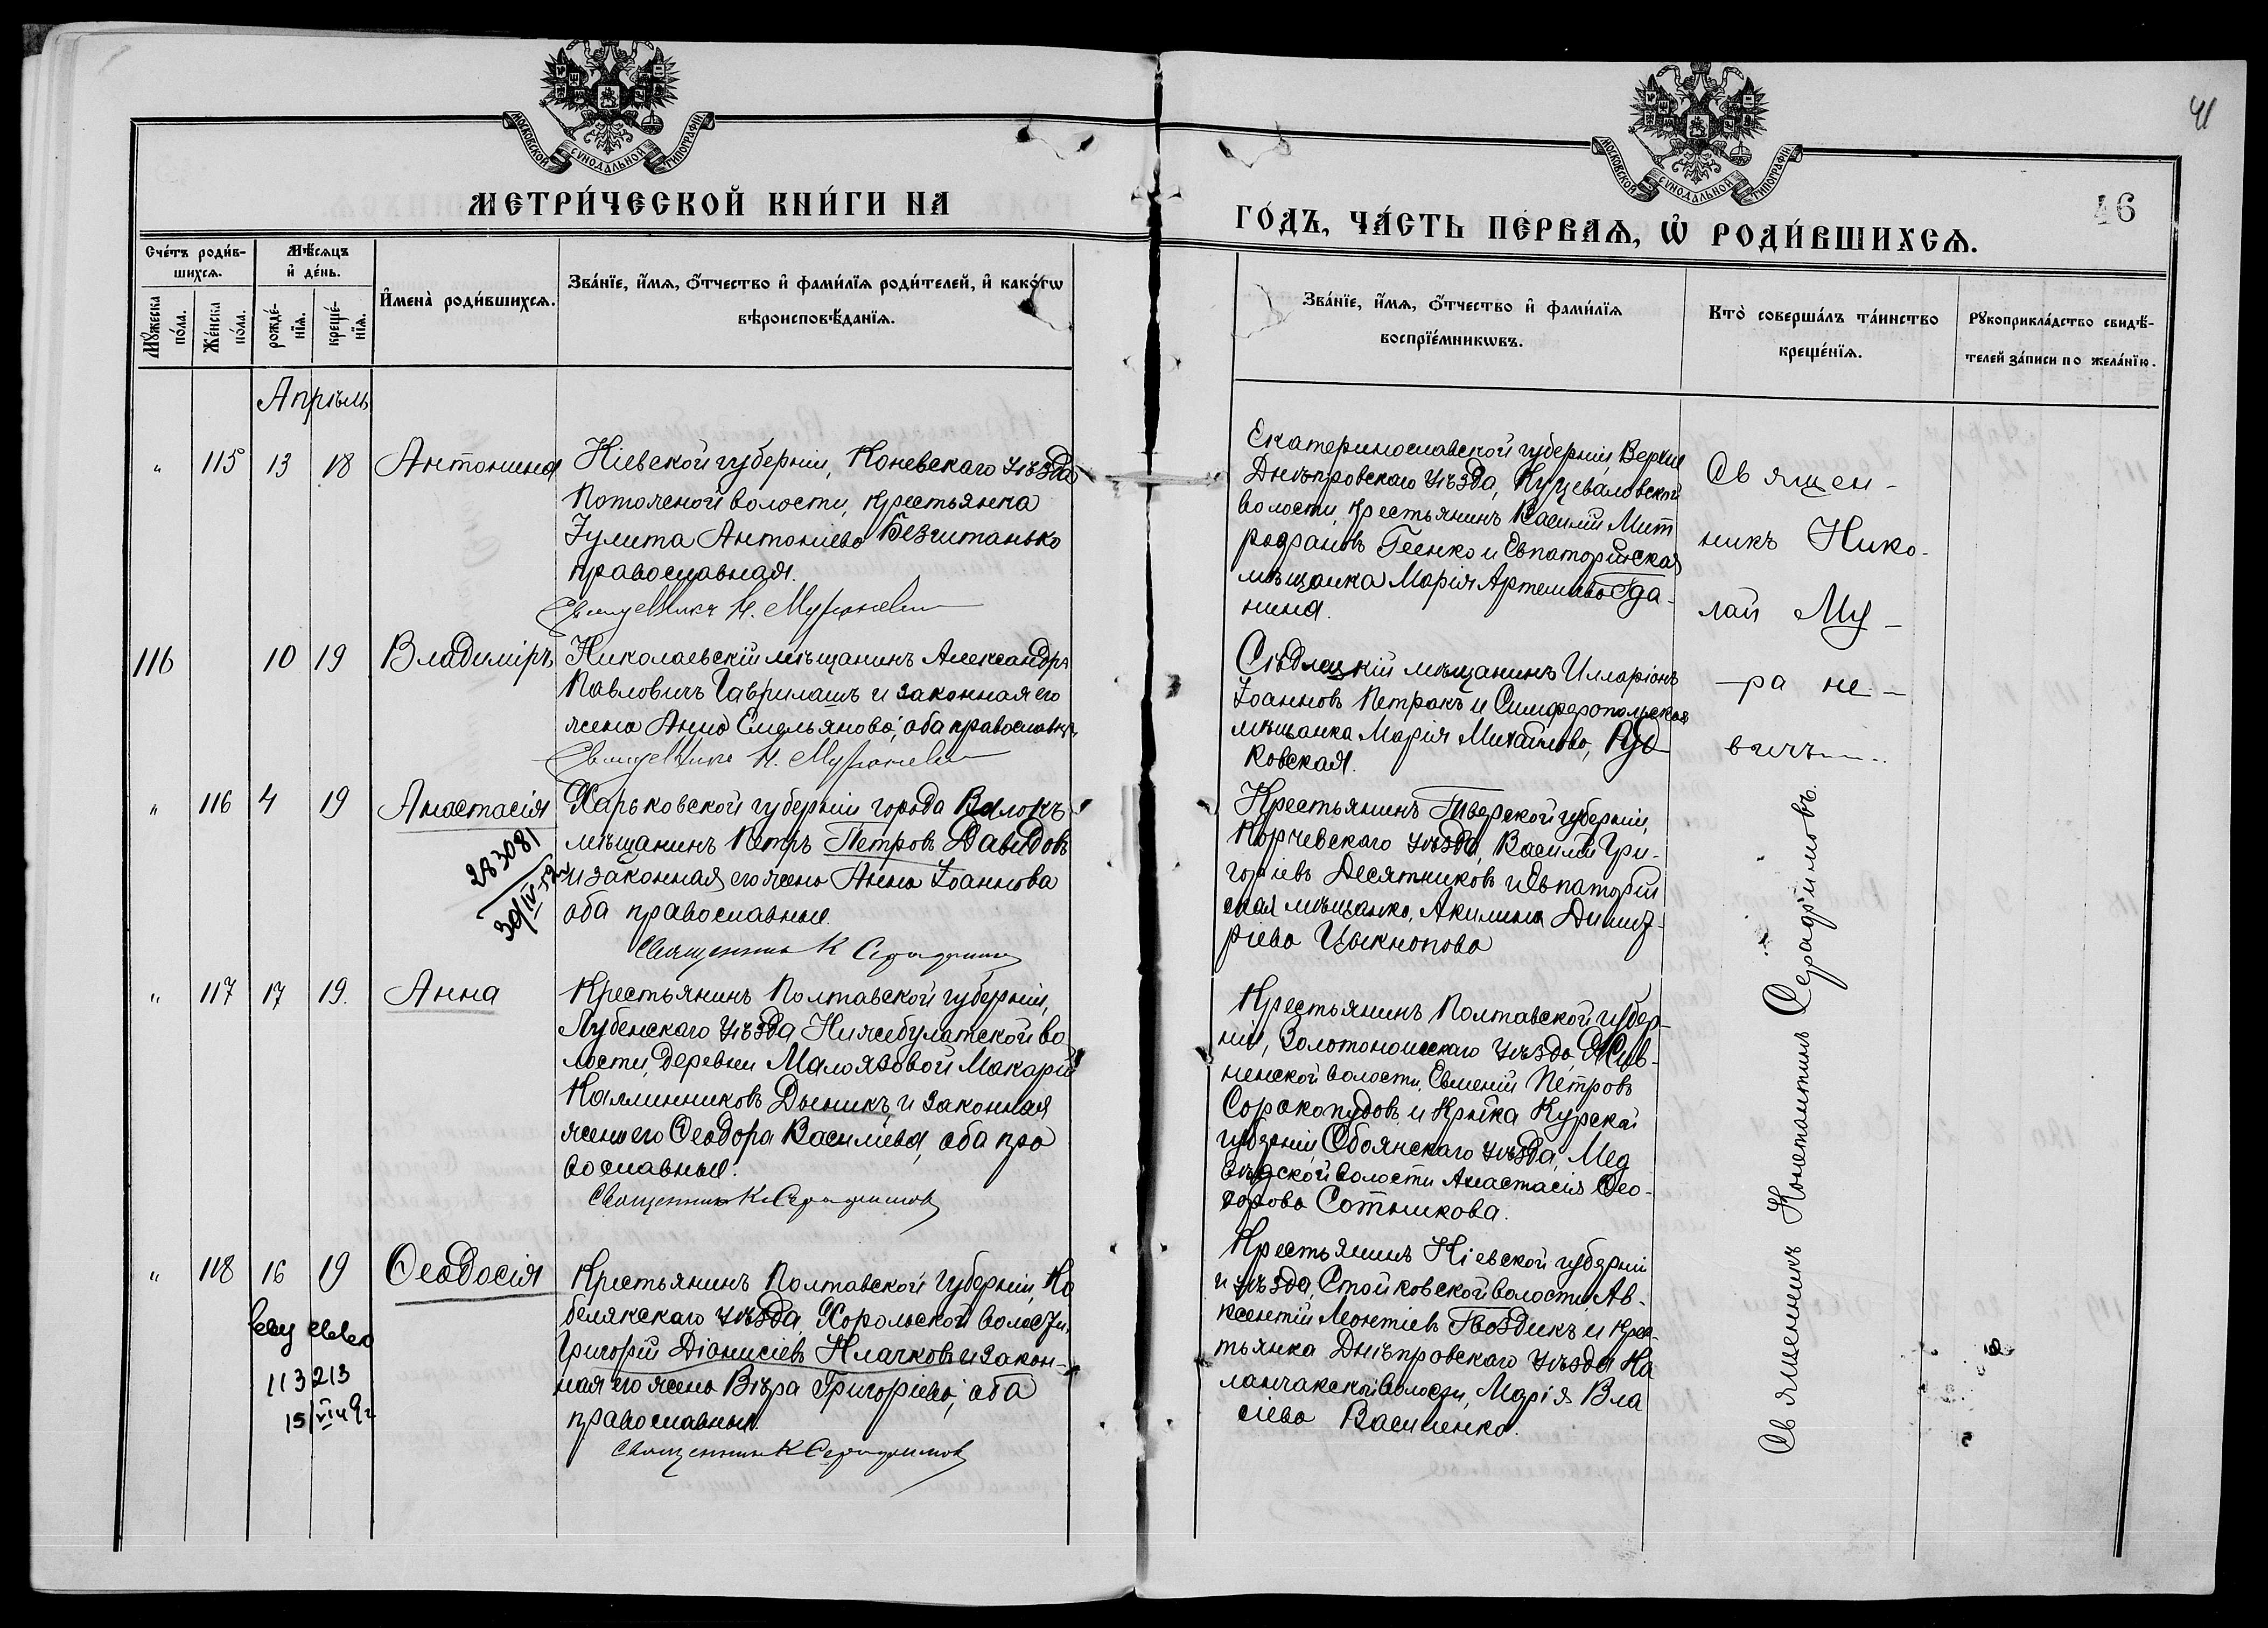 41
МОСКОВСКОЙ СѴНОДАЛЬНОЙ ТИПОГРАФІИ
МОСКОВСКОЙ СѴНОДАЛЬНОЙ ТИПОГРАФІИ
МЕТРИ́ЧЕСКОЙ КНИ́ГИ НА
ГО́ДЪ, ЧА́СТЬ ПЕ́РВАѦ, Ѡ҆ РОДИ́ВШИХСѦ.
46
Сче́тъ роди́в-
шихсѧ.
Мѣ́сѧцъ
и҆ де́нь.
Мꙋ́жеска
по́ла.
Же́нска
по́ла.
рожде́-
нїѧ.
креще́-
нїѧ.
И҆мена̀ роди́вшихсѧ.
Зва́нїе, и҆́мѧ, ѻ҆́тчество и҆ фами́лїѧ роди́телей, и҆ како́гѡ
вѣроисповѣ́данїѧ.
Зва́нїе, и҆́мѧ, ѻ҆́тчество и҆ фами́лїѧ
воспрїе́мникѡвъ.
Кто̀ соверша́лъ та́инство
креще́нїѧ.
Рꙋкоприкла́дство свидѣ́-
телей за́писи по жела́нїю.
Апрѣль
" 115 13 18 Антонина
Кіевской губерніи, Коневскаго уѣзда
Потокской волости, крестьянка
Іулита Антоніева Безчитанько
православная.
Священникъ Н. Мураневичъ
Екатеринославской губерніи, Верхне
Днѣпровскаго уѣзда, Куцеваловской
волости, крестьянинъ Василій Мит
рофановъ Геенко и Евпаторійская
мѣщанка Марія Артемьева Гда-
нина.
Священ-
никъ Нико-
лай Му-
-ра не-
вичъ
116 10 19 Владиміръ
Николаевскій мѣщанинъ Александръ
Павловичъ Гаврилашъ и законная его
жена Анна Емельянова, оба православн.
Священникъ Н. Мураневичъ
Сѣдлецкій мѣщанинъ Илларіонъ
Іоанновъ Петракъ и Симферопольская
мѣщанка Марія Михайлова, Руд
ковская.
" 116 4 19 Анастасія
283081
30/IV-59г
Харьковской губерніи города Валокъ
мѣщанинъ Петръ Петровъ Давидовъ
и законная его жена Анна Іоаннова
оба православные.
Священникъ К Серафимовъ
Крестьянинъ Тверской губерніи,
Корчевскаго уѣзда, Василій Гри-
горіевъ Десятниковъ и Евпаторій
ская мѣщанка, Акилина Димит-
ріева Цыкнопова
" 117 17 19. Анна
Крестьянинъ Полтавской губерніи,
Лубенскаго уѣзда, Нижебулатской во
лости, деревни Малоязовой Макарій
Каллинниковъ Дыникъ и законная
жена его Ѳеодора Васильева, оба пра
вославные.
Священникъ К. Серафимовъ
Крестьянинъ Полтавской губер-
ніи, Золотоношскаго уѣзда,
ненской волости, Евменій Петровъ
Сорокопудовъ и кр-нка Курской
губерніи, Обоянскаго уѣзда, Мед
вѣдской волости Анастасія Ѳео-
дорова Сотникова.
" 118 16 19 Ѳеодосія
113213
15/VIII
Крестьянинъ Полтавской губерніи, Ко
белякскаго уѣзда, Хорольской волости,
Григорій Діонисіевъ Клачковъ и закон-
ная его жена Вѣра Григоріева, оба
православные.
Священникъ К Серафимовъ
Крестьянинъ Кіевской губерніи
и уѣзда, Стайковской волости Ав-
ксентій Леонтіевъ Гвоздикъ и крес-
тьянка Днѣпровскаго уѣзда Ка
ланчакской волости, Марія Вла
сіева Василенко.
Священникъ Константинъ Серафимовъ.